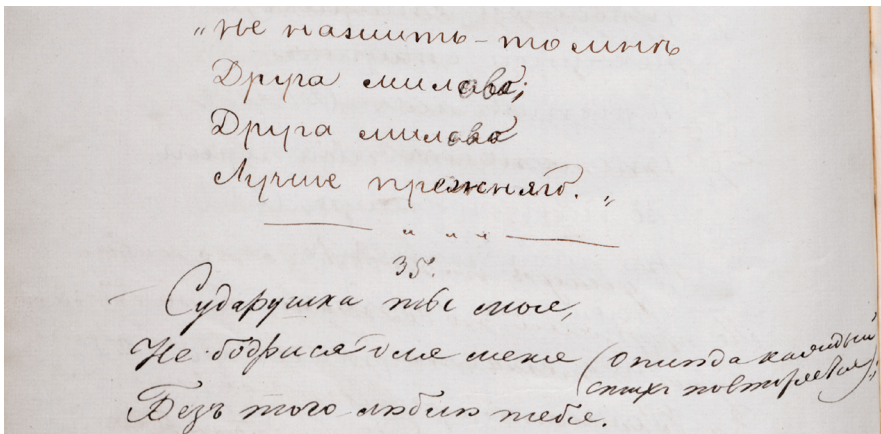 „не нажить-то мнѣ
Друга милова;
Друга милова
Лучше прежняго.„
35.
Сударушка ты моя,
Не бодрися для меня (
каждый
стихъ повторяется);
Безъ того люблю тебя.